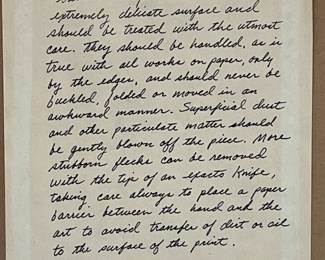 extremely delicate surface and
should be treated with the utmost
care. They should be handled, as is
true with all works on paper, only
by the edges, and should never be
buckled, folded or moved in an
awkward manner. Superficial dust
and other particulate matter should
be gently blown off the piece. More
stubborn flecks can be removed
with the tip of an exacto knife,
taking care always to place a paper
barrier between the hand and the
art to avoid transfer of dirt or oil
to the surface of the print.